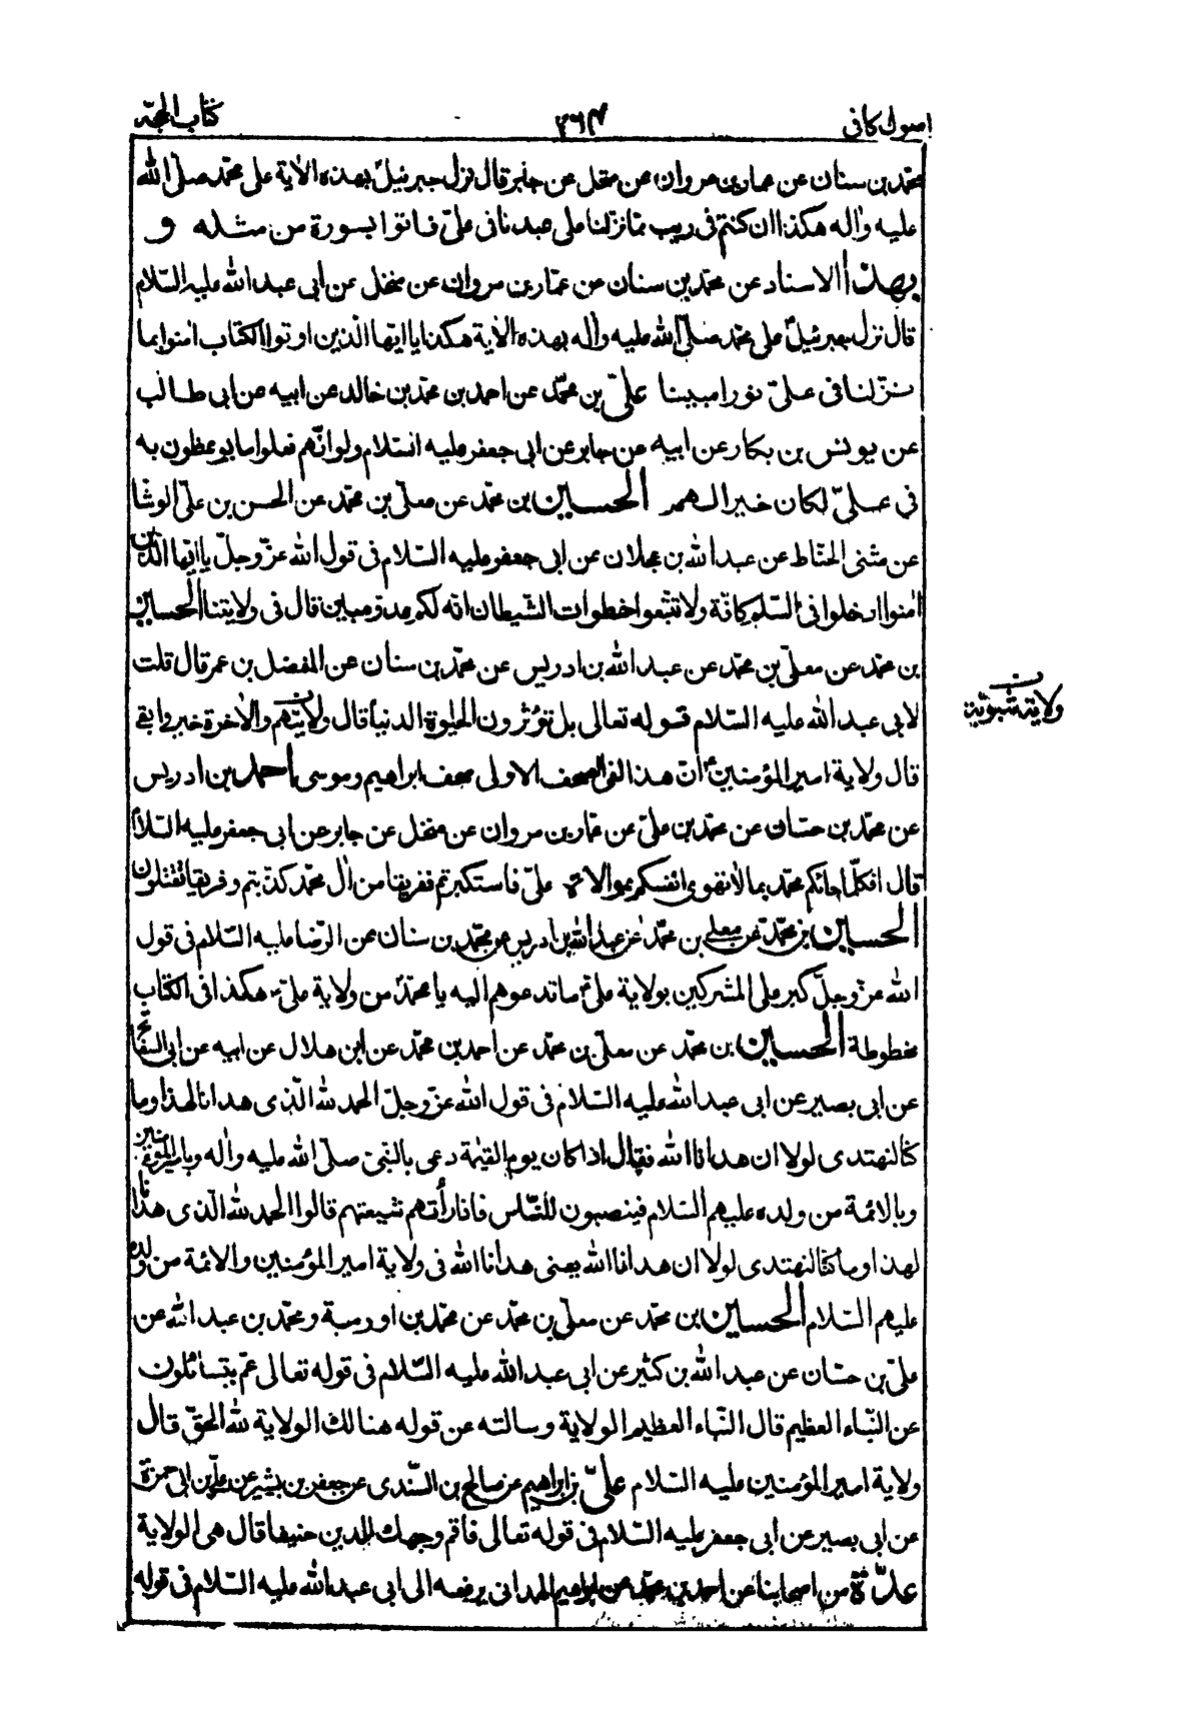 اصول كافى ٢٦٤ كتاب الحجّة
محمّد بن سنان عن عمار بن مروان عن منخل عن جابر قال نزل جبرئيلؑ بهذه الاٰية على محمّد صلّى الله
عليه واٰله هكذا ان كنتم فى ريب ممّا نزلنا على عبدنا فى علىّ فاتوا بسورة من مثله و
بهذا الاسناد عن محمّد بن سنان عن عمّار بن مروان عن منخل عن ابى عبد الله عليه السّلام
قال نزل جبرئيلؑ على محمّد صلّى الله عليه واٰله بهذه الاٰية هكذا يا ايّها الّذين اوتوا الكتاب اٰمنوا بما
نزّلنا فى علىّ نورا مبينا علىّ بن محمّد عن احمد بن محمّد بن خالد عن ابيه عن ابى طالب
عن يونس بن بكار عن ابيه عن جابر عن ابى جعفر عليه السّلام ولو انّهم فعلوا ما يوعظون به
فى علىّ لكان خيرا لهم الحسين بن محمّد عن معلّى بن محمّد عن الحسن بن علىّ الوشّا
عن مثنى الحنّاط عن عبد الله بن عجلان عن ابى جعفر عليه السّلام فى قول الله عزّ وجلّ يا ايّها الّذين
اٰمنوا ادخلوا فى السّلم كافّة ولا تتّبعوا خطوات الشّيطان انّه لكم عدوّ مبين قال فى ولايتنا الحسين
بن محمّد عن معلّى بن محمّد عن عبد الله بن ادريس عن محمّد بن سنان عن المفضل بن عمر قال قلت
لابى عبد الله عليه السّلام قوله تعالى بل تؤثرون الحيٰوة الدنيا قال ولايتهم والاٰخرة خير وابقى
ولاية شبّوية ن
قال ولاية امير المؤمنينؑ انّ هذا لفى الصحف الاولى صحف ابراهيم وموسى احمد بن ادريس
عن محمّد بن حسّان عن محمّد بن علىّ عن عمّار بن مروان عن منخل عن جابر عن ابى جعفر عليه السّلام
قال افكلّما جائكم محمّد بما لا تهوى انفسكم بموالاة علىّ فاستكبرتم ففريقا من اٰل محمّد كذّبتم وفريقا تقتلون
الحسين بن محمّد عن معلى بن محمّد عن عبد الله بن ادريس عن محمّد بن سنان عن الرّضا عليه السّلام فى قول
الله عزّ وجلّ كبر على المشركين بولاية علىّ ما تدعوهم اليه يا محمّد من ولاية علىّ هكذا فى الكتاب
مخطوطة الحسين بن محمّد عن معلّى بن محمّد عن احمد بن محمّد عن ابن هلال عن ابيه عن ابى السفاتج
عن ابى بصير عن ابى عبد الله عليه السّلام فى قول الله عزّ وجلّ الحمد لله الّذى هدانا لهذا وما
كنّا لنهتدى لولا ان هدانا الله فقال اذا كان يوم القيٰمة دعى بالنّبىّ صلّى الله عليه واٰله وبامير المؤمنين
وبالائمة من ولده عليهم السّلام فينصبون للنّاس فاذا رأتهم شيعتهم قالوا الحمد لله الّذى هدانا
لهذا وما كنّا لنهتدى لولا ان هدانا الله يعنى هدانا الله فى ولاية امير المؤمنين والائمة من ولده
عليهم السّلام الحسين بن محمّد عن معلّى بن محمّد عن محمّد بن اورمة ومحمّد بن عبد الله عن
علىّ بن حسّان عن عبد الله بن كثير عن ابى عبد الله عليه السّلام فى قوله تعالى عمّ يتسائلون
عن النّباء العظيم قال النّباء العظيم الولاية وسالته عن قوله هنالك الولاية لله الحقّ قال
ولاية امير المؤمنين عليه السّلام علىّ بن ابراهيم عن صالح بن السّندى عن جعفر بن بشير عن علىّ بن ابى حمزة
عن ابى بصير عن ابى جعفر عليه السّلام فى قوله تعالى فاقم وجهك للدين حنيفا قال هى الولاية
عدّة من اصحابنا عن احمد بن محمّد عن ابراهيم الهمدانى يرفعه الى ابى عبد الله عليه السّلام فى قوله